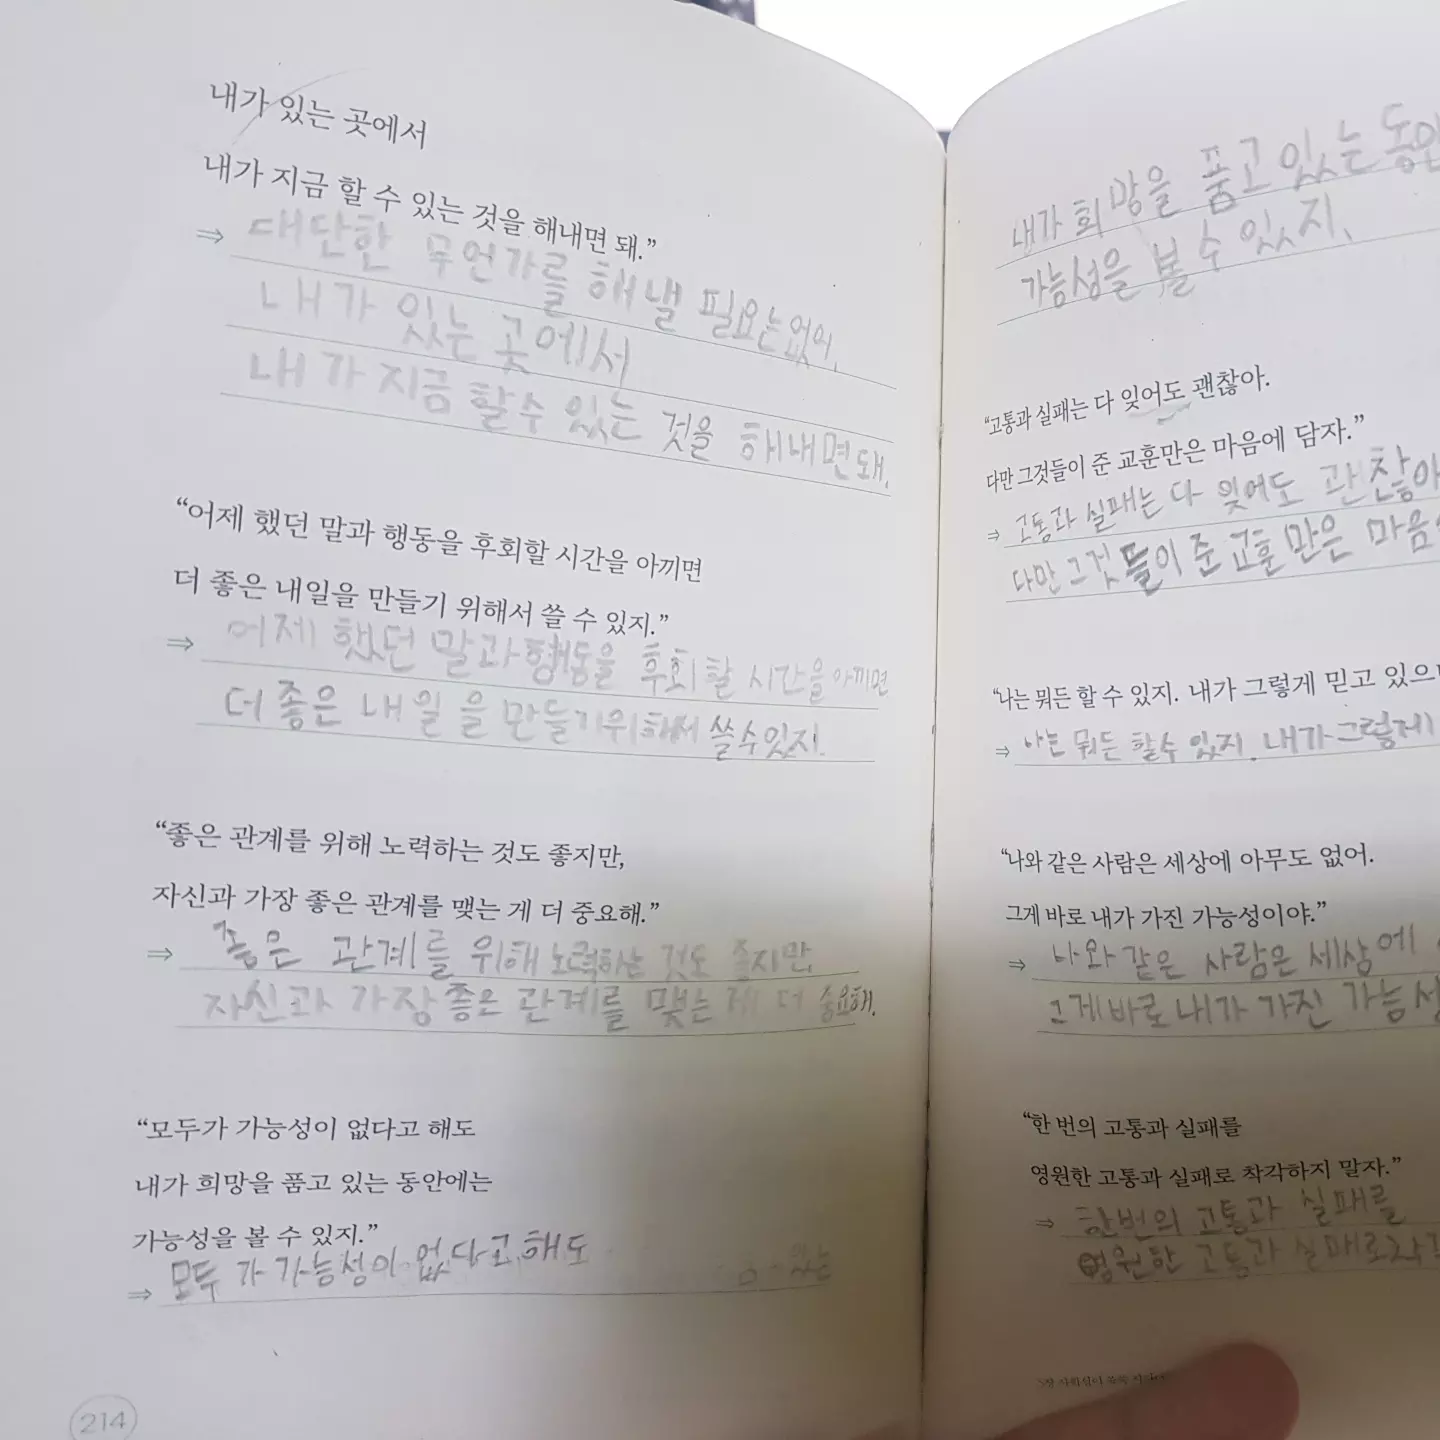 내가 있는 곳에서
내가 지금 할 수 있는 것을 해내면 돼.”
⇒ 대단한 무언가를 해낼 필요는 없어.
내가 있는 곳에서
내가 지금 할 수 있는 것을 해내면 돼.
“어제 했던 말과 행동을 후회할 시간을 아끼면
더 좋은 내일을 만들기 위해서 쓸 수 있지.”
⇒ 어제 했던 말과 행동을 후회할 시간을 아끼면
더 좋은 내일을 만들기 위해서 쓸 수 있지.
“좋은 관계를 위해 노력하는 것도 좋지만,
자신과 가장 좋은 관계를 맺는 게 더 중요해.”
⇒ 좋은 관계를 위해 노력하는 것도 좋지만,
자신과 가장 좋은 관계를 맺는 게 더 중요해.
“모두가 가능성이 없다고 해도
내가 희망을 품고 있는 동안에는
가능성을 볼 수 있지.”
⇒ 모두가 가능성이 없다고 해도
214
내가 희망을 품고 있는 동안
가능성을 볼 수 있지.
“고통과 실패는 다 잊어도 괜찮아.
다만 그것들이 준 교훈만은 마음에 담자.”
⇒ 고통과 실패는 다 잊어도 괜찮아
다만 그것들이 준 교훈만은 마음
“나는 뭐든 할 수 있지. 내가 그렇게 믿고 있으니
⇒ 나는 뭐든 할 수 있지. 내가 그렇게
“나와 같은 사람은 세상에 아무도 없어.
그게 바로 내가 가진 가능성이야.”
⇒ 나와 같은 사람은 세상에
그게 바로 내가 가진 가능성
“한 번의 고통과 실패를
영원한 고통과 실패로 착각하지 말자.”
⇒ 한 번의 고통과 실패를
영원한 고통과 실패로 착각